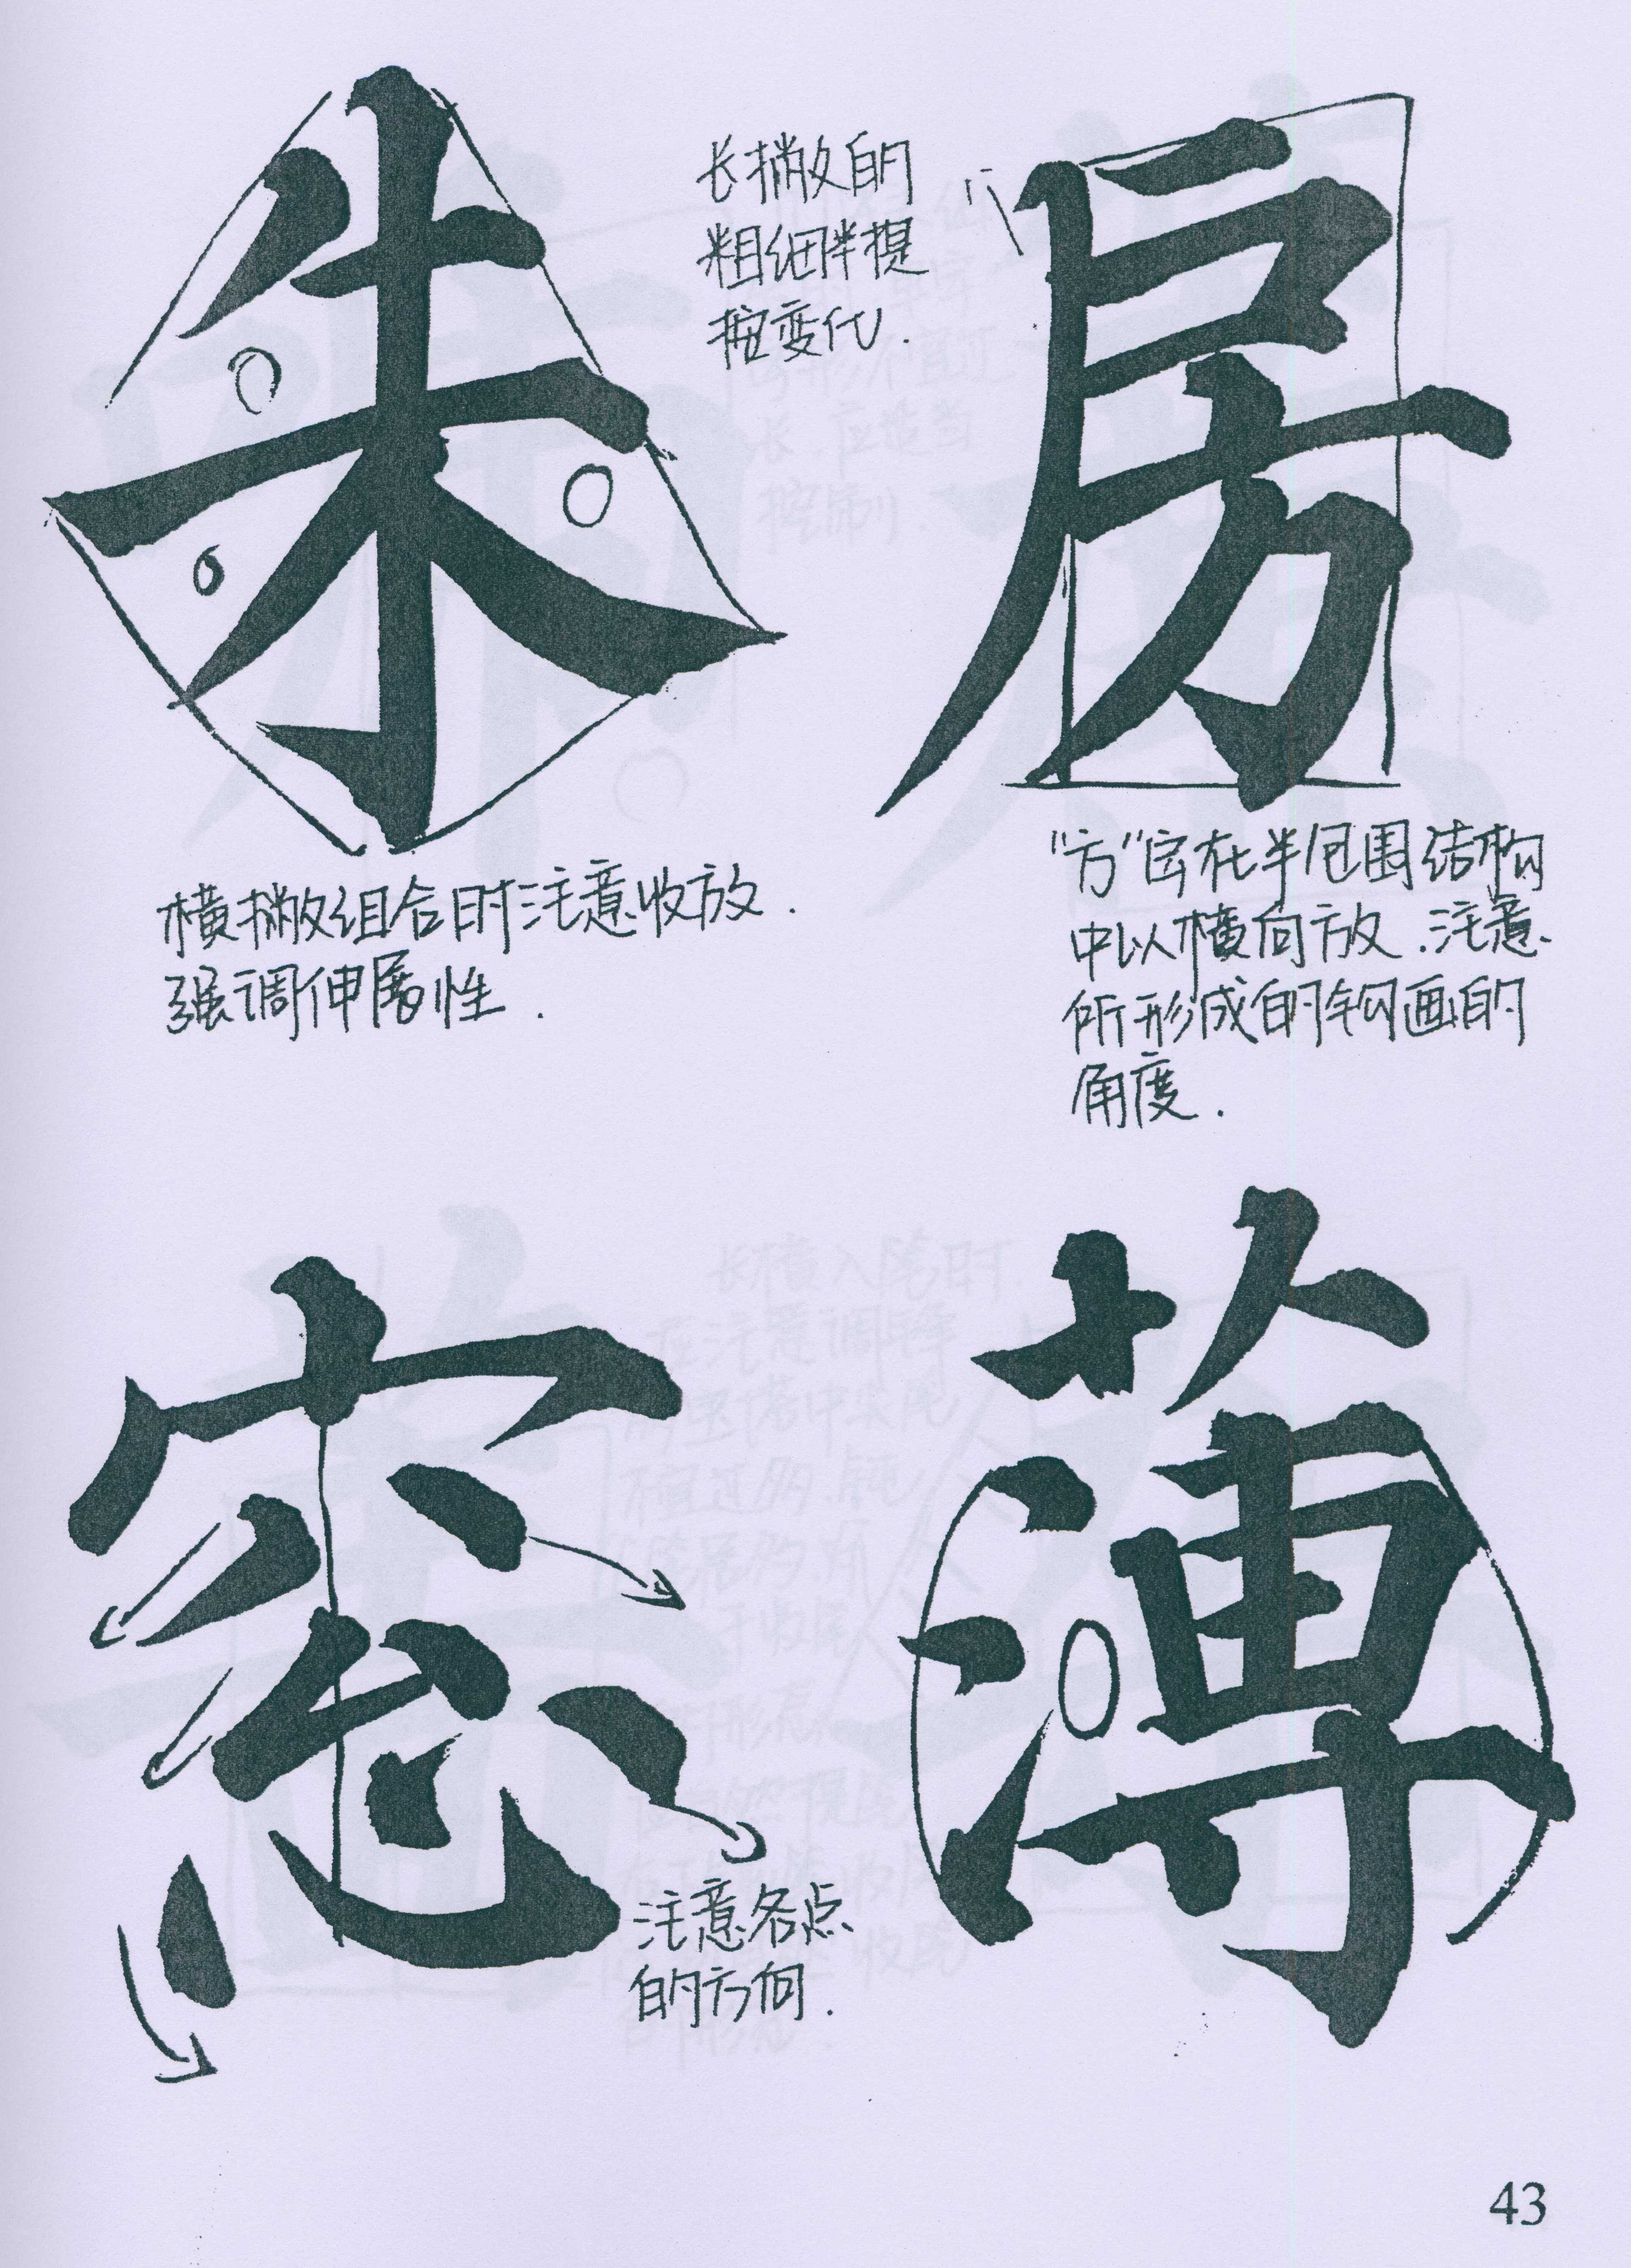 朱
长撇的
粗细伴提
按变化.
房
横撇组合时注意收放.
强调伸展性.
"方"字在半包围结构
中以横向放.注意
所形成的钩画的
角度.
窓
薄
注意各点
的方向.
43